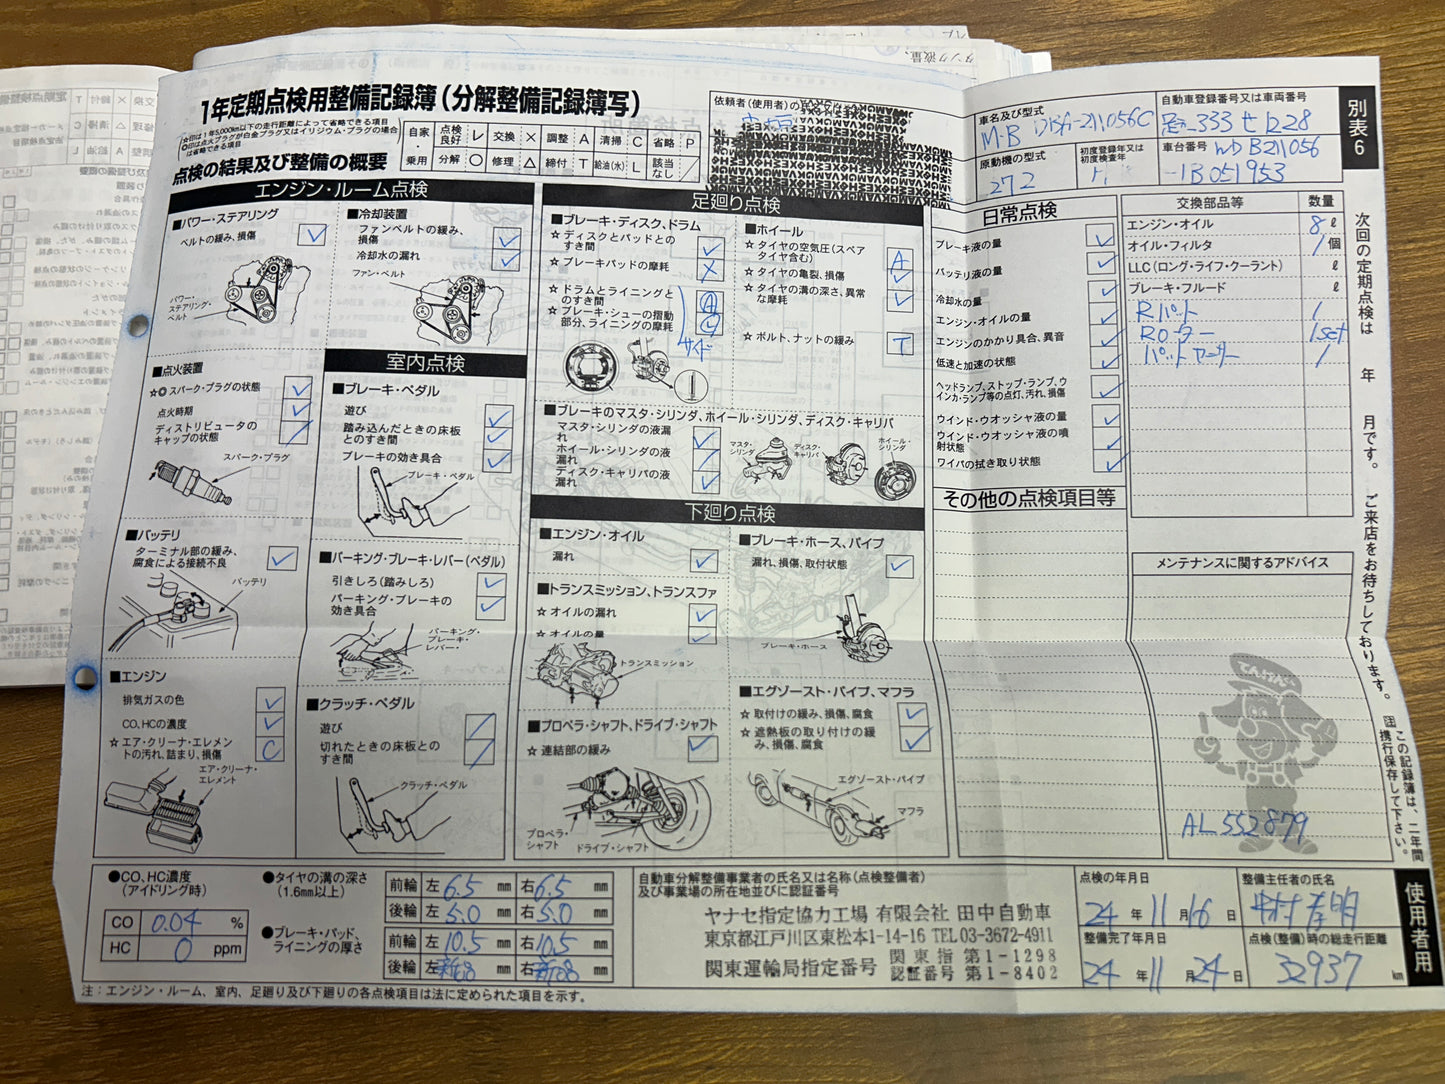 1年定期点検用整備記録簿(分解整備記録簿写)
☆印は1年5,000km以下の走行距離によって省略できる項目
✪印は点火プラグが白金プラグ又はイリジウム・プラグの場合は省略できる項目
点検の結果及び整備の概要
自家・乗用
点検良好 レ 交換 × 調整 A 清掃 C 省略 P
分解 ○ 修理 △ 締付 T 給油(水) L 該当なし ／
依頼者(使用者)の
車名及び型式
M・B DBA-211056C
自動車登録番号又は車両番号
333 せ 1228
原動機の型式
272
初度登録年又は初度検査年
車台番号
WDB211056
-1B051953
別表6
エンジン・ルーム点検
■パワー・ステアリング
ベルトの緩み、損傷
パワー・ステアリング・ベルト
■冷却装置
ファンベルトの緩み、損傷
冷却水の漏れ
ファン・ベルト
■点火装置
☆✪ スパーク・プラグの状態
点火時期
ディストリビュータのキャップの状態
スパーク・プラグ
■バッテリ
ターミナル部の緩み、腐食による接続不良
バッテリ
■エンジン
排気ガスの色
CO、HCの濃度
☆ エア・クリーナ・エレメントの汚れ、詰まり、損傷 C
エア・クリーナ・エレメント
室内点検
■ブレーキ・ペダル
遊び
踏み込んだときの床板とのすき間
ブレーキの効き具合
ブレーキ・ペダル
■パーキング・ブレーキ・レバー(ペダル)
引きしろ(踏みしろ)
パーキング・ブレーキの効き具合
パーキング・ブレーキ・レバー・
■クラッチ・ペダル
遊び
切れたときの床板とのすき間
クラッチ・ペダル
足廻り点検
■ブレーキ・ディスク、ドラム
☆ ディスクとパッドとのすき間
☆ ブレーキパッドの摩耗 ×
☆ ドラムとライニングとのすき間 A
☆ ブレーキ・シューの摺動部分、ライニングの摩耗
サイド
■ホイール
☆ タイヤの空気圧(スペアタイヤ含む) A
☆ タイヤの亀裂、損傷
☆ タイヤの溝の深さ、異常な摩耗
☆ ボルト、ナットの緩み T
■ブレーキのマスタ・シリンダ、ホイール・シリンダ、ディスク・キャリパ
マスタ・シリンダの液漏れ
ホイール・シリンダの液漏れ
ディスク・キャリパの液漏れ
マスタ・シリンダ
ディスク・キャリパ
ホイール・シリンダ
下廻り点検
■エンジン・オイル
漏れ
■ブレーキ・ホース、パイプ
漏れ、損傷、取付状態
ブレーキ・ホース
■トランスミッション、トランスファ
☆ オイルの漏れ
☆ オイルの量
トランスミッション
■プロペラ・シャフト、ドライブ・シャフト
☆ 連結部の緩み
プロペラ・シャフト
ドライブ・シャフト
■エグゾースト・パイプ、マフラ
☆ 取付けの緩み、損傷、腐食
☆ 遮熱板の取り付けの緩み、損傷、腐食
エグゾースト・パイプ
マフラ
日常点検
ブレーキ液の量
バッテリ液の量
冷却水の量
エンジン・オイルの量
エンジンのかかり具合、異音
低速と加速の状態
ヘッドランプ、ストップ・ランプ、ウインカ・ランプ等の点灯、汚れ、損傷
ウインド・ウオッシャ液の量
ウインド・ウオッシャ液の噴射状態
ワイパの拭き取り状態
その他の点検項目等
交換部品等 数量
エンジン・オイル 8 ℓ
オイル・フィルタ 1 個
LLC(ロング・ライフ・クーラント) ℓ
ブレーキ・フルード ℓ
Rパット 1
Rローター 1set
パットセンサー 1
メンテナンスに関するアドバイス
てんけんくん
AL552879
次回の定期点検は 年 月です。 ご来店をお待ちしております。
囲 この記録簿は、二年間携行保存して下さい。
使用者用
●CO、HC濃度(アイドリング時)
CO 0.04 %
HC 0 ppm
●タイヤの溝の深さ(1.6mm以上)
前輪 左 6.5 mm 右 6.5 mm
後輪 左 5.0 mm 右 5.0 mm
●ブレーキ・パッド、ライニングの厚さ
前輪 左 10.5 mm 右 10.5 mm
後輪 左 mm 右 mm
自動車分解整備事業者の氏名又は名称(点検整備者)及び事業場の所在地並びに認証番号
ヤナセ指定協力工場 有限会社 田中自動車
東京都江戸川区東松本1-14-16 TEL03-3672-4911
関東運輸局指定番号 関東指 第1-1298
認証番号 第1-8402
点検の年月日
24 年 11 月 16 日
整備主任者の氏名
整備完了年月日
24 年 11 月 24 日
点検(整備)時の総走行距離
32937 km
注：エンジン・ルーム、室内、足廻り及び下廻りの各点検項目は法に定められた項目を示す。